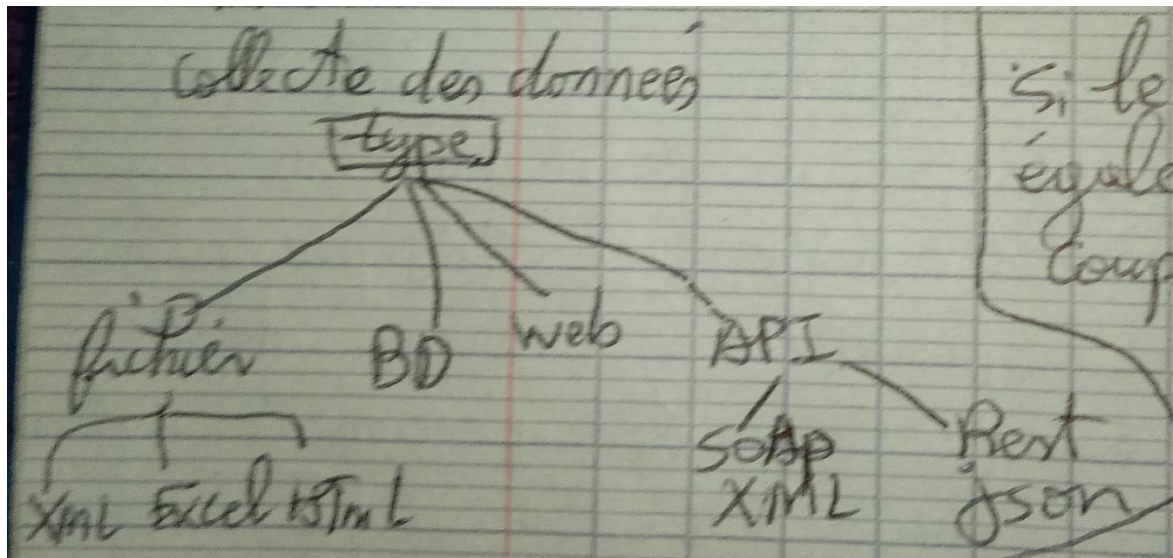 Collecte des données
type
fichier BD web API
Xml Excel HTmL
SOAP Rest
XML json
Si le
égale
Coup